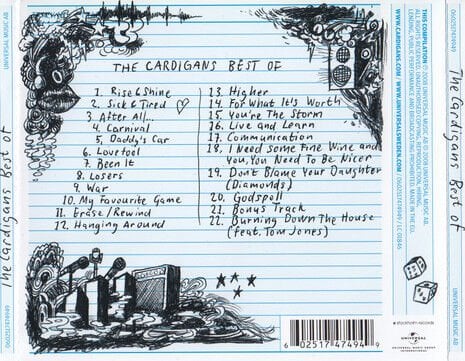 THE CARDIGANS BEST OF
1. Rise & Shine
2. Sick & Tired
3. After All...
4. Carnival
5. Daddy's Car
6. Lovefool
7. Been It
8. Losers
9. War
10. My Favourite Game
11. Erase / Rewind
12. Hanging Around
13. Higher
14. For What It's Worth
15. You're The Storm
16. Live and Learn
17. Communication
18. I Need Some Fine Wine and
you, You Need To Be Nicer
19. Don't Blame Your Daughter
(Diamonds)
20. Godspell
21. Bonus Track
22. Burning Down The House
(feat. Tom Jones)
6 02517 47494 9
stockholm records
UNIVERSAL
UNIVERSAL MUSIC GROUP
The Cardigans Best of
0602517474949
UNIVERSAL MUSIC AB
The Cardigans Best of
0602517474949
UNIVERSAL MUSIC AB
THIS COMPILATION ℗ 2008 UNIVERSAL MUSIC AB. © 2008 UNIVERSAL MUSIC AB.
ALL RIGHTS RESERVED. UNAUTHORISED COPYING, REPRODUCTION, HIRING,
LENDING, PUBLIC PERFORMANCE AND BROADCASTING PROHIBITED. MADE IN THE EU.
WWW.CARDIGANS.COM / WWW.UNIVERSALSWEDEN.COM / 0602517474949 / LC 01846